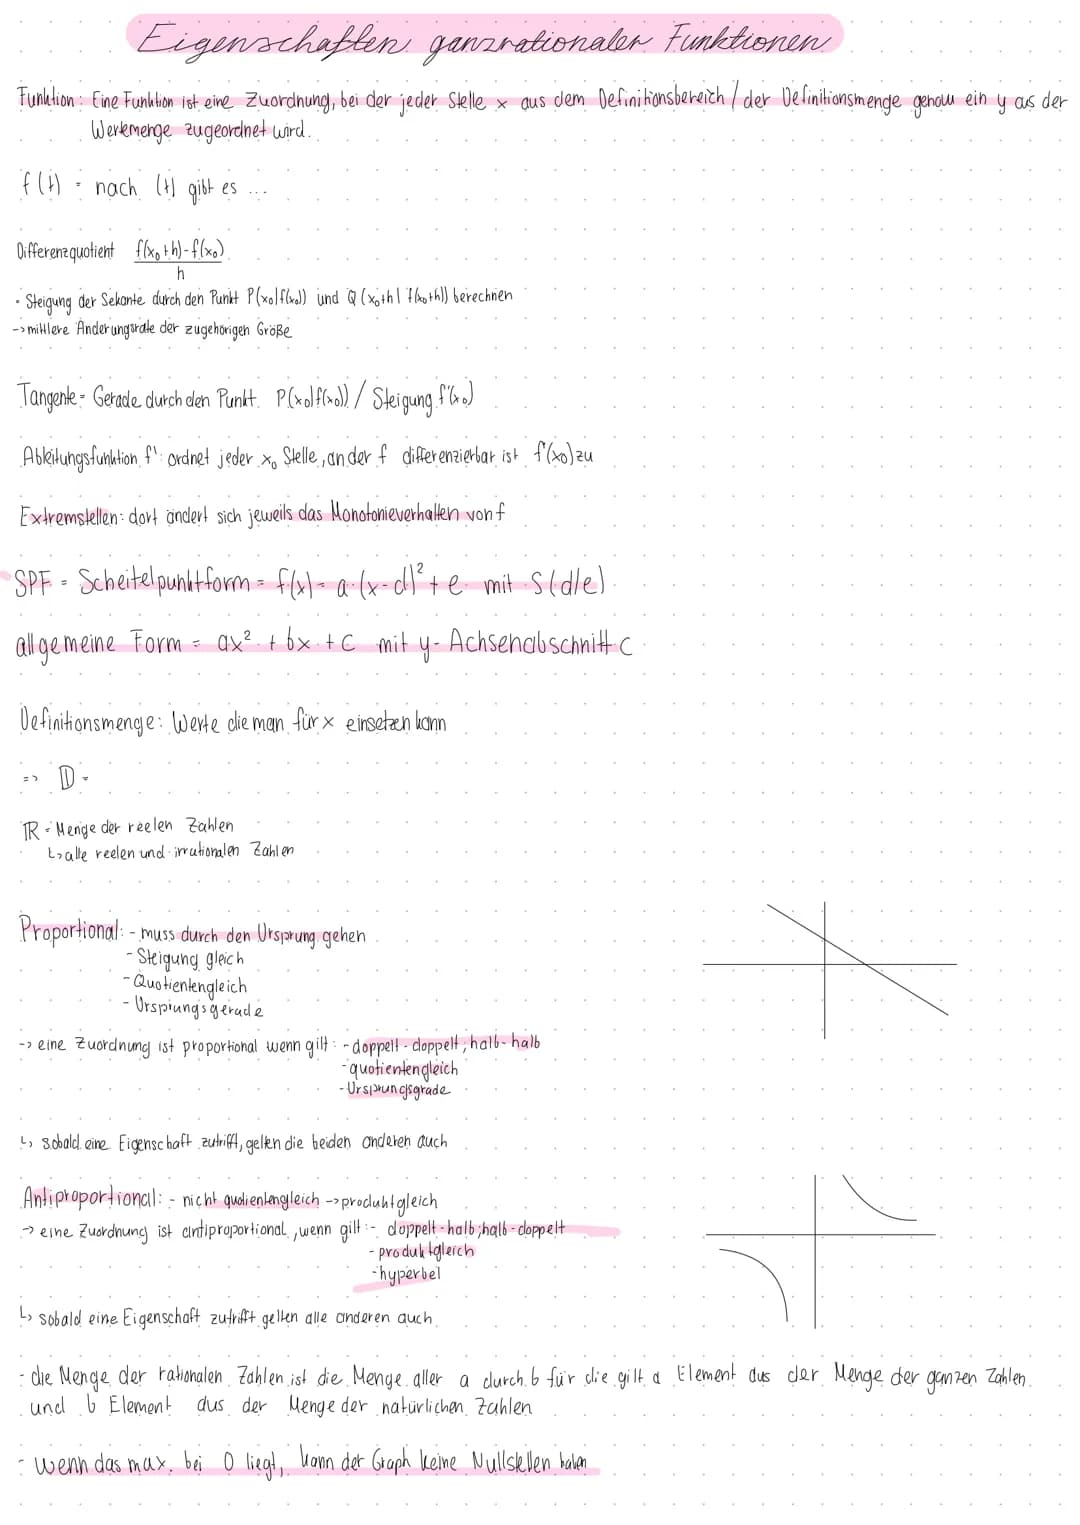 Eigenschaften ganzrationaler Funktionen
Funktion: Eine Funktion ist eine Zuordnung, bei der jeder Stelle x aus dem Definitionsbereich / der Definitionsmenge genau ein y aus der
Wertemenge zugeordnet wird.
f(t) = nach (t) gibt es ...
Differenzquotient f(x₀+h)-f(x₀)
h
• Steigung der Sekante durch den Punkt P(x₀|f(x₀)) und Q(x₀+h| f(x₀+h)) berechnen
-> mittlere Änderungsrate der zugehörigen Größe
Tangente = Gerade durch den Punkt P(x₀|f(x₀)) / Steigung f'(x₀)
Ableitungsfunktion f': ordnet jeder x₀ Stelle, an der f differenzierbar ist f'(x₀) zu
Extremstellen: dort ändert sich jeweils das Monotonieverhalten von f
SPF = Scheitelpunktform = f(x) = a·(x-d)² + e mit S(d/e)
allgemeine Form = ax² + bx + c mit y-Achsenabschnitt c
Definitionsmenge: Werte die man für x einsetzen kann
=> 𝔻 =
ℝ = Menge der reelen Zahlen
↳ alle reelen und irrationalen Zahlen
Proportional: - muss durch den Ursprung gehen
- Steigung gleich
- Quotientengleich
- Ursprungsgerade
-> eine Zuordnung ist proportional wenn gilt: - doppelt - doppelt; halb - halb
- quotientengleich
- Ursprungsgrade
↳ sobald eine Eigenschaft zutrifft, gelten die beiden anderen auch
Antiproportional: - nicht quotientengleich -> produktgleich
-> eine Zuordnung ist antiproportional, wenn gilt: - doppelt - halb; halb - doppelt
- produktgleich
- hyperbel
↳ sobald eine Eigenschaft zutrifft gelten alle anderen auch.
- die Menge der rationalen Zahlen ist die Menge aller a durch b für die gilt a Element aus der Menge der ganzen Zahlen
und b Element aus der Menge der natürlichen Zahlen
- wenn das max. bei 0 liegt, kann der Graph keine Nullstellen haben